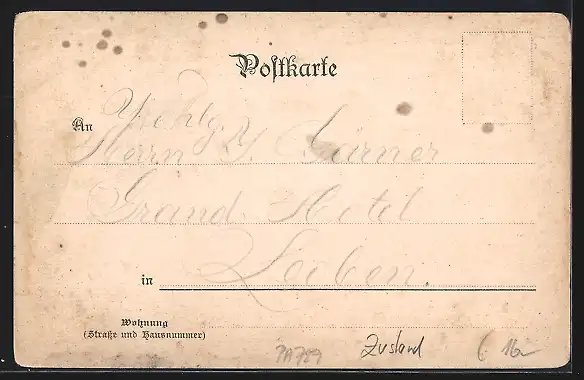 Postkarte
An
Herrn Y. Gürner
Grand Hotel
in Leoben.
Wohnung
(Straße und Hausnummer)
PA729 Zustand